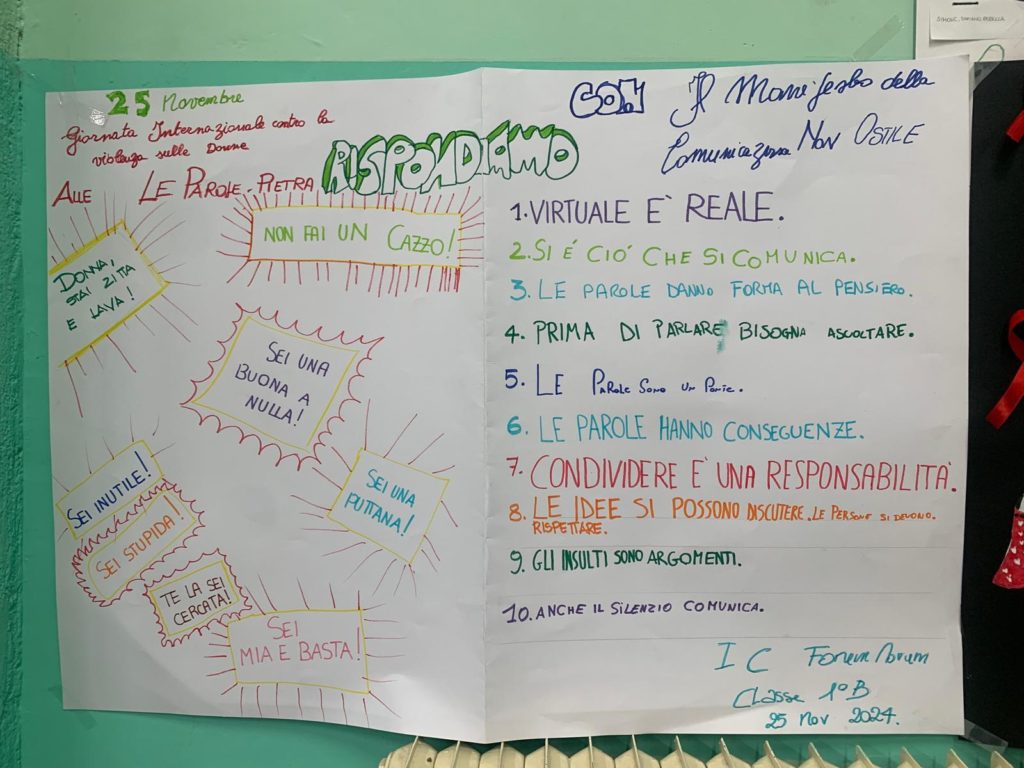 SIMONE,
25 Novembre
Giornata Internazionale contro la
violenza sulle Donne
ALLE LE PAROLE-PIETRA RISPONDIAMO
DONNA,
STAI ZITTA
E LAVA!
NON FAI UN CAZZO!
SEI UNA
BUONA A
NULLA!
SEI INUTILE!
SEI STUPIDA!
SEI UNA
PUTTANA!
TE LA SEI
CERCATA!
SEI
MIA E BASTA!
CON Il Manifesto della
Comunicazione NON OSTILE
1. VIRTUALE E' REALE.
2. SI É CIÓ CHE SI COMUNICA.
3. LE PAROLE DANNO FORMA AL PENSIERO.
4. PRIMA DI PARLARE BISOGNA ASCOLTARE.
5. LE PAROLE SONO UN PONTE.
6. LE PAROLE HANNO CONSEGUENZE.
7. CONDIVIDERE E' UNA RESPONSABILITA'.
8. LE IDEE SI POSSONO DISCUTERE. LE PERSONE SI DEVONO.
RISPETTARE.
9. GLI INSULTI SONO ARGOMENTI.
10. ANCHE IL SILENZIO COMUNICA.
I C Forum Novum
Classe 1° B
25 Nov 2024.